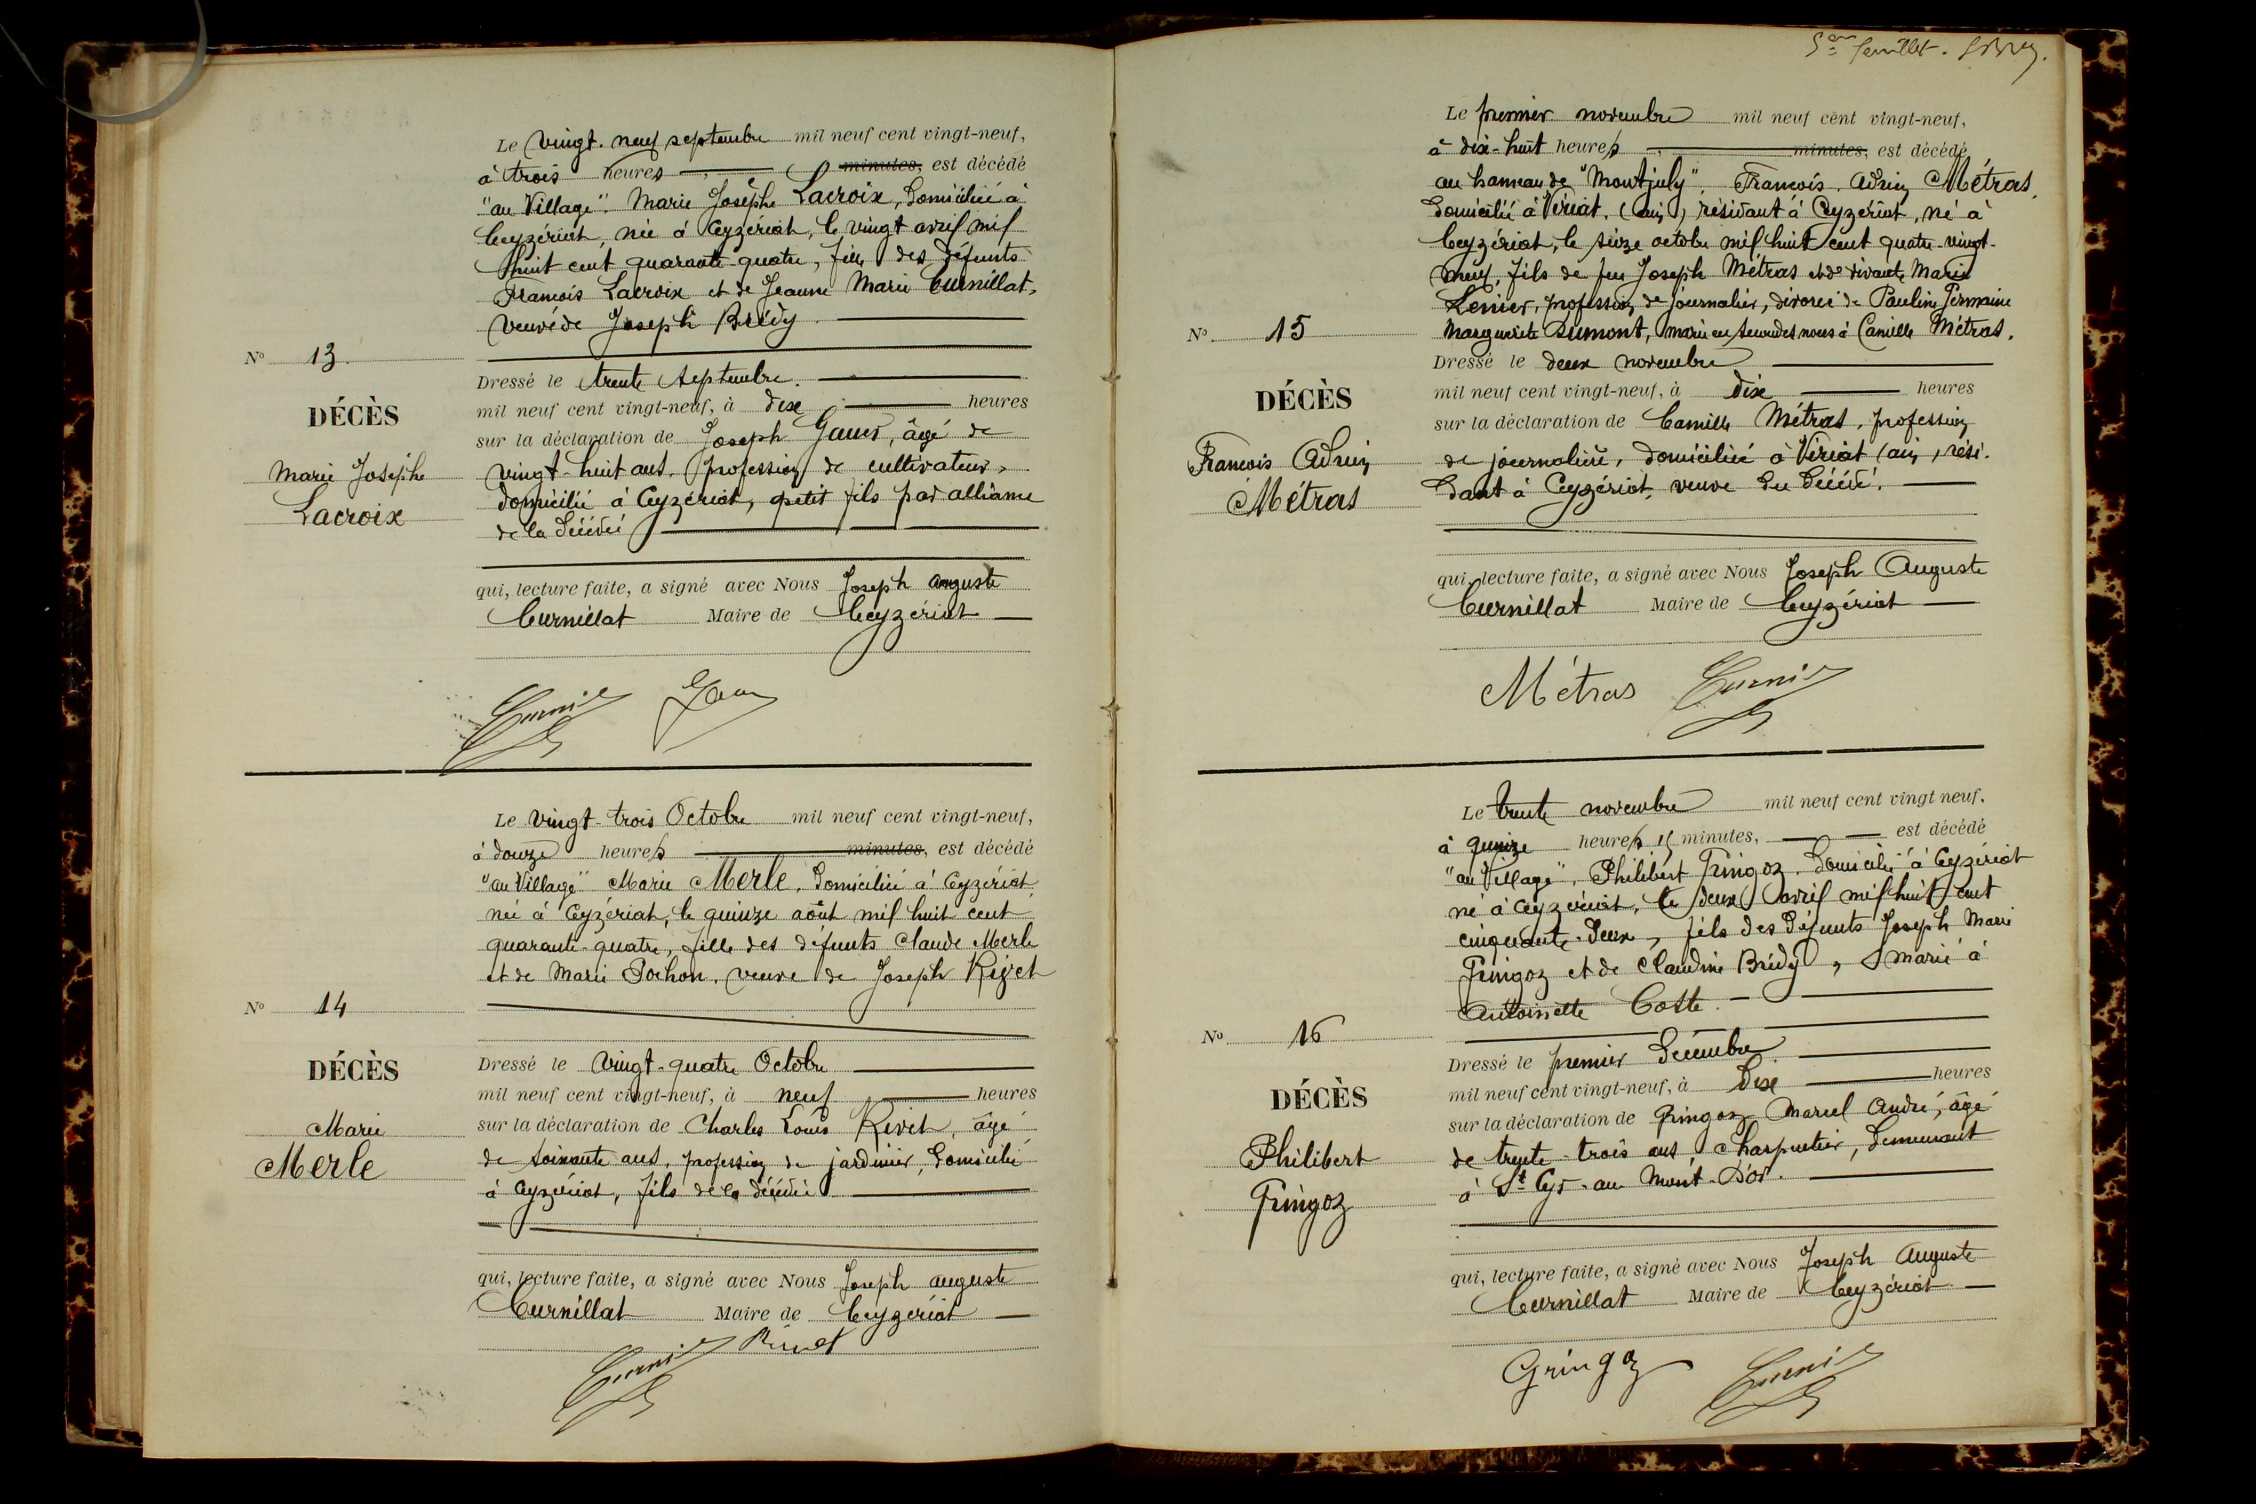 Le vingt-neuf septembre mil neuf cent vingt-neuf,
à trois heures minutes, est décédé
"au Village". Marie Josephe Lacroix, domiciliée à
Ceyzériat, née à Ceyzériat, le vingt avril mil
huit cent quarante-quatre, fille des défunts
François Lacroix et de Jeanne Marie Curnillat,
veuve de Joseph Brédy.
N° 13.
DÉCÈS
Marie Josephe
Lacroix
Dressé le trente septembre.
mil neuf cent vingt-neuf, à dix heures
sur la déclaration de Joseph, âgé de
vingt-huit ans, profession de cultivateur,
domicilié à Ceyzériat, petit fils par alliance
de la décédée
qui, lecture faite, a signé avec Nous Joseph Auguste
Curnillat Maire de Ceyzériat
Le vingt-trois Octobre mil neuf cent vingt-neuf,
à douze heures minutes, est décédé
"au Village" Marie Merle, domiciliée à Ceyzériat,
née à Ceyzériat, le quinze août mil huit cent
quarante-quatre, fille des défunts Claude Merle
et de Marie Pochon, veuve de Joseph Rivet
N° 14
DÉCÈS
Marie
Merle
Dressé le vingt-quatre Octobre
mil neuf cent vingt-neuf, à neuf heures
sur la déclaration de Charles Louis Rivet, âgé
de soixante ans, profession de jardinier, domicilié
à Ceyzériat, fils de la décédée
qui, lecture faite, a signé avec Nous Joseph auguste
Curnillat Maire de Ceyzériat
Rivet
5em feuillet.
Le premier novembre mil neuf cent vingt-neuf,
à dix-huit heures minutes, est décédé
au hameau de "Montjuly". François Adrien Métras,
domicilié à Viriat, (Ain), résidant à Ceyzériat, né à
Ceyzériat, le seize octobre mil huit cent quatre-vingt-
neuf, fils de feu Joseph Métras et de vivante Marie
profession de journalier, divorcé de Pauline Germaine
Marguerite Dumont, marié en secondes noces à Camille Métras.
N° 15
DÉCÈS
François Adrien
Métras
Dressé le deux novembre
mil neuf cent vingt-neuf, à dix heures
sur la déclaration de Camille Métras, profession
de journalière, domiciliée à Viriat (Ain), rési-
dant à Ceyzériat, veuve du décédé.
qui, lecture faite, a signé avec Nous Joseph Auguste
Curnillat Maire de Ceyzériat
Métras
Le trente novembre mil neuf cent vingt neuf.
à quinze heures minutes, est décédé
"au Village". Philibert Gringoz, domicilié à Ceyzériat
né à Ceyzériat, le deux avril mil huit cent
cinquante-deux, fils des défunts Joseph Marie
Gringoz et de Claudine Brédy, marié à
Antoinette Cotte.
N° 16
DÉCÈS
Philibert
Gringoz
Dressé le premier décembre
mil neuf cent vingt-neuf, à dix heures
sur la déclaration de Gringoz Marcel André, âgé
de trente-trois ans, charpentier, demeurant
à St Cyr-au-Mont-d'Or.
qui, lecture faite, a signé avec Nous Joseph Auguste
Curnillat Maire de Ceyzériat
Gringoz